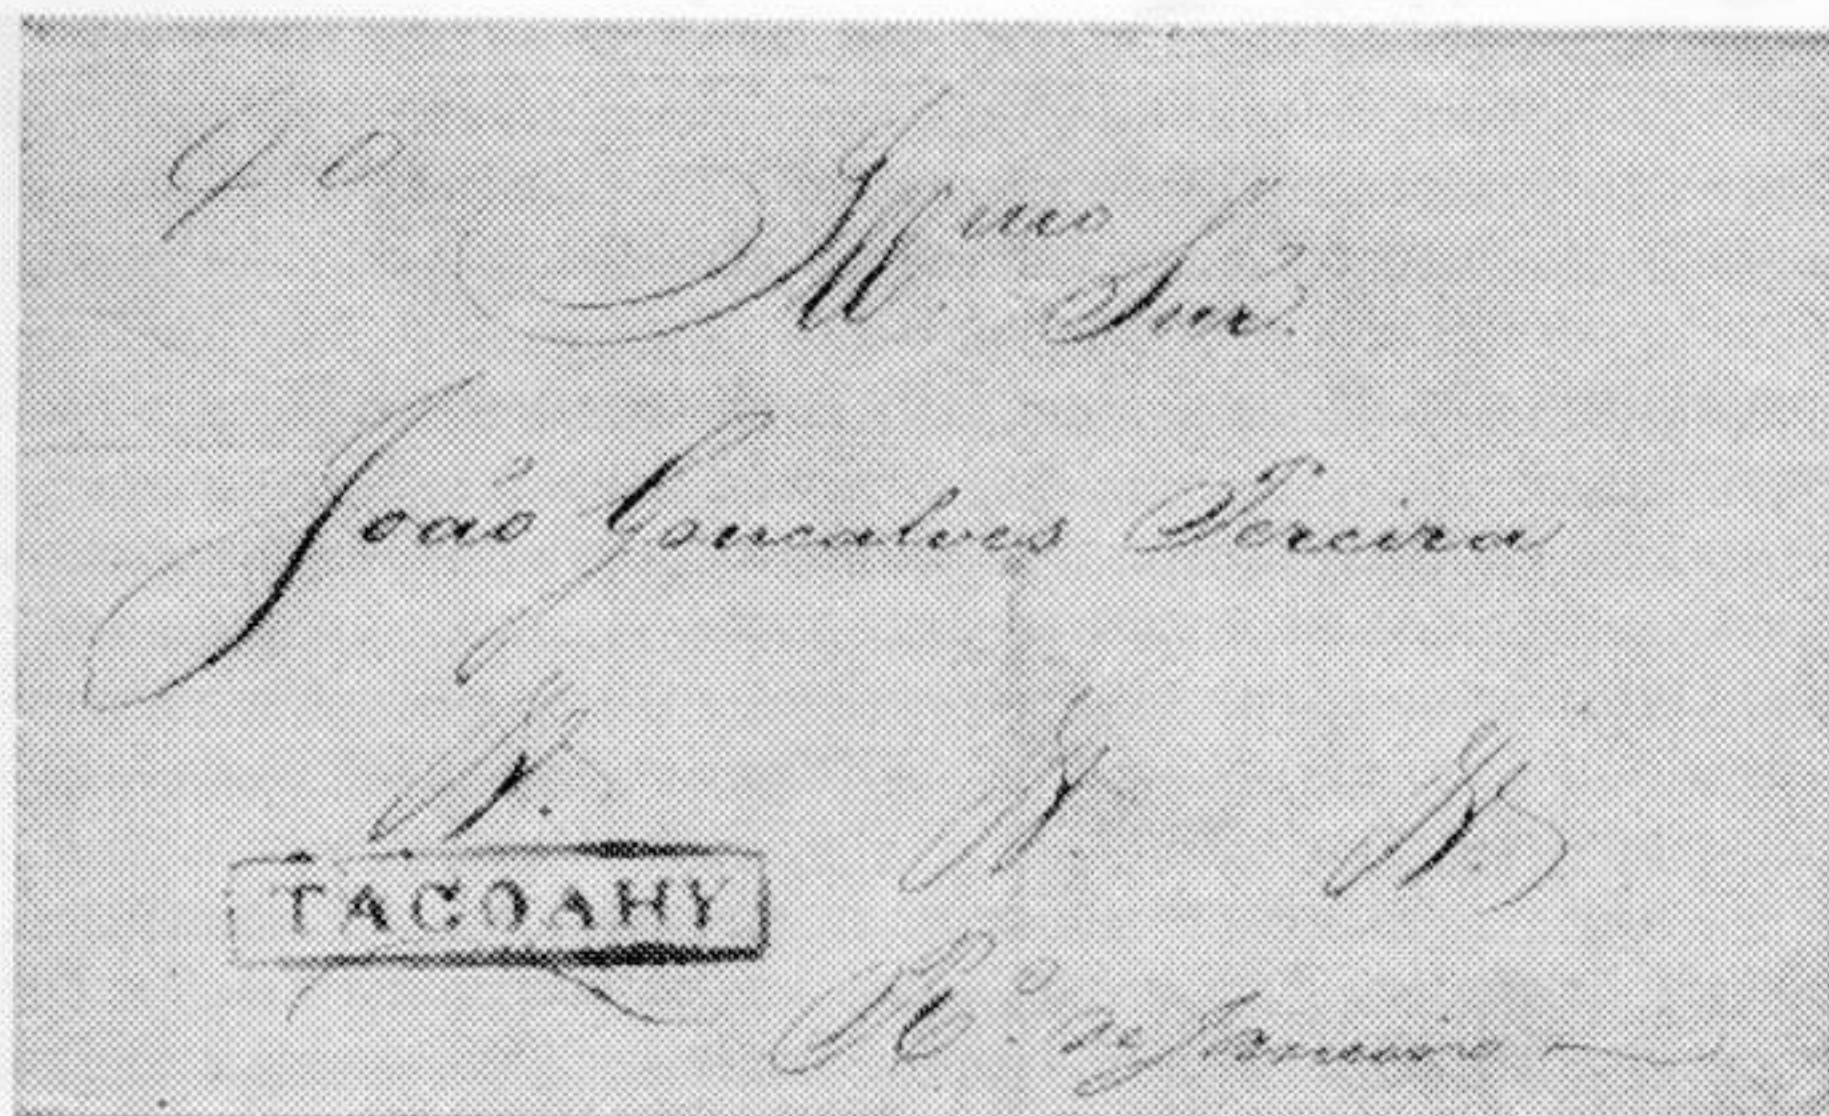 Ill.mo Snr.
João Gonçalves Pereira
TAGOAHY
R.o de Janeiro